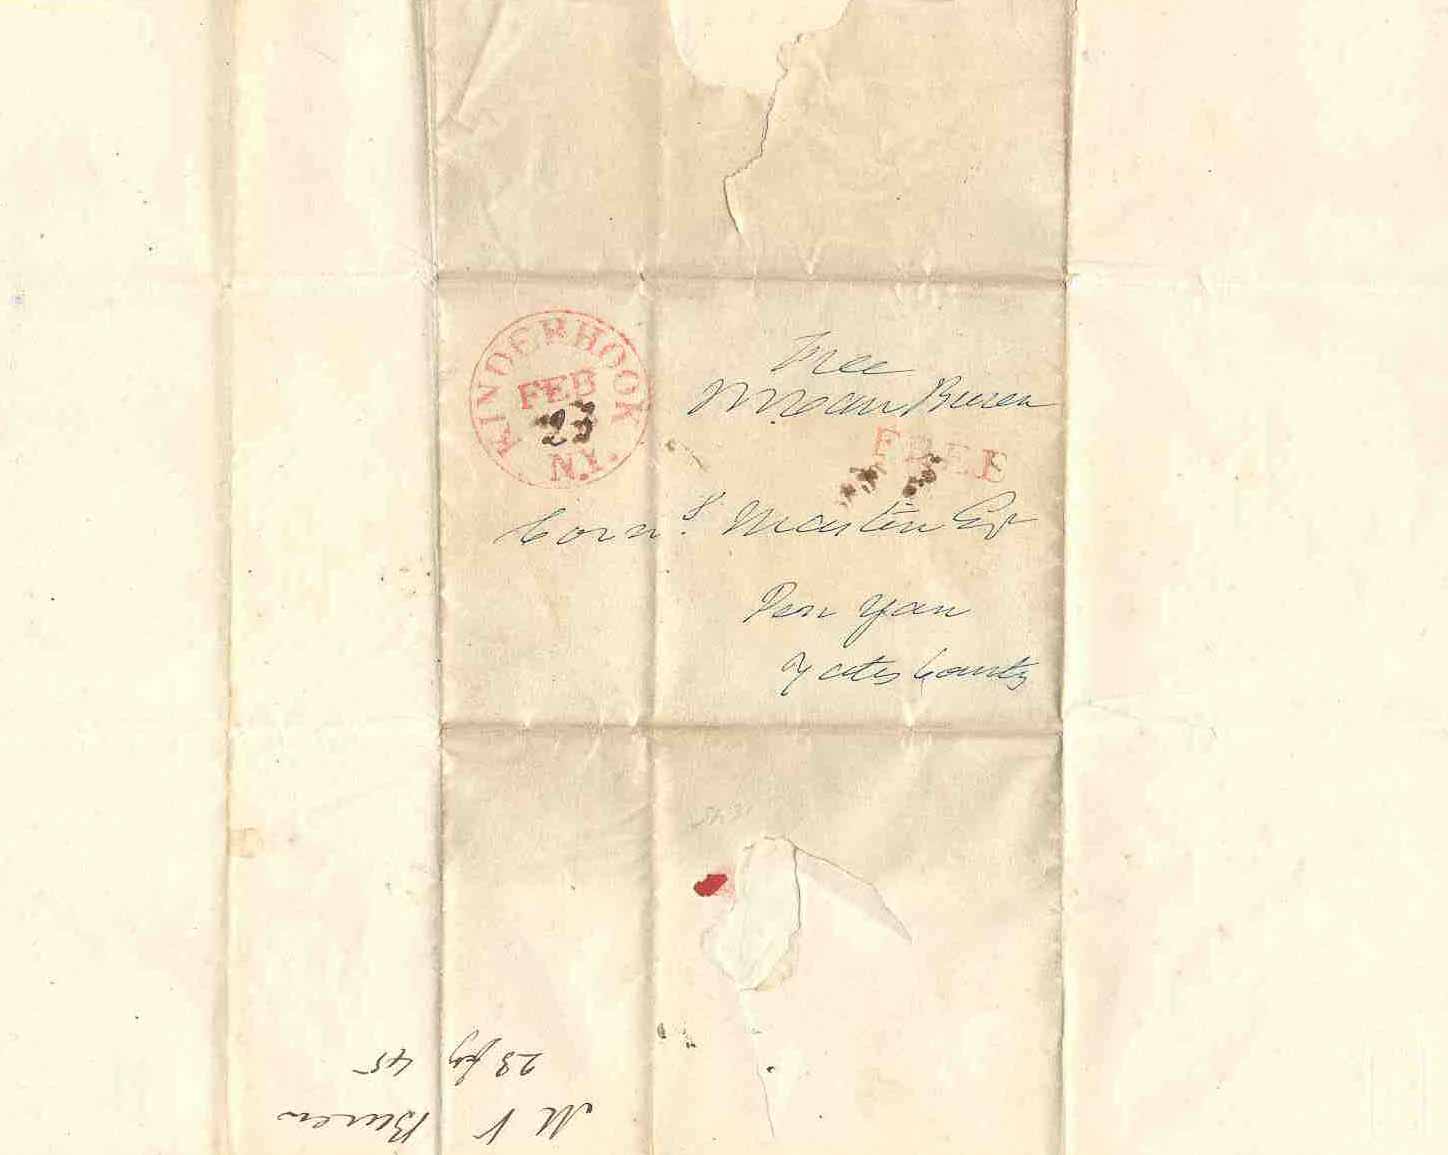 KINDERHOOK
FEB
23
N.Y.
Free
M Van Buren
FREE
Corn.s Martin Esq
Pen Yan
Yates County
M V Buren
23 feby 45